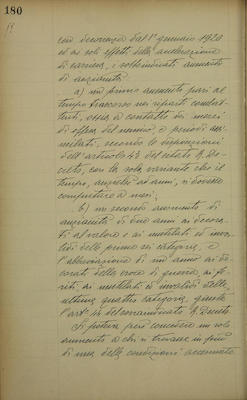 180
con decorrenza dal 1° gennaio 1920
ed ai soli effetti della accelerazione
di carriera, i sottoindicati aumenti
di anzianità:
a) un primo aumento pari al
tempo trascorso nei reparti combat-
tenti, ossia a contatto dei mezzi
di offesa del nemico, o periodi assi-
milati, secondo le disposizioni
dell'articolo 43 del citato R. De-
creto, con la sola variante che il
tempo, anziché ad anni, si dovesse
computare a mesi;
b) un secondo aumento di
anzianità di due anni ai decora-
ti al valore e ai mutilati ed inva-
lidi delle prime sei categorie, e
l'abbreviazione di un anno ai de-
corati della croce di guerra, ai fe-
riti, ai mutilati ed invalidi delle
ultime quattro categorie, giusta
l'art. 44 del R. Decreto.
Si poteva però concedere un solo
aumento a chi si trovasse in più
di una delle condizioni accennate